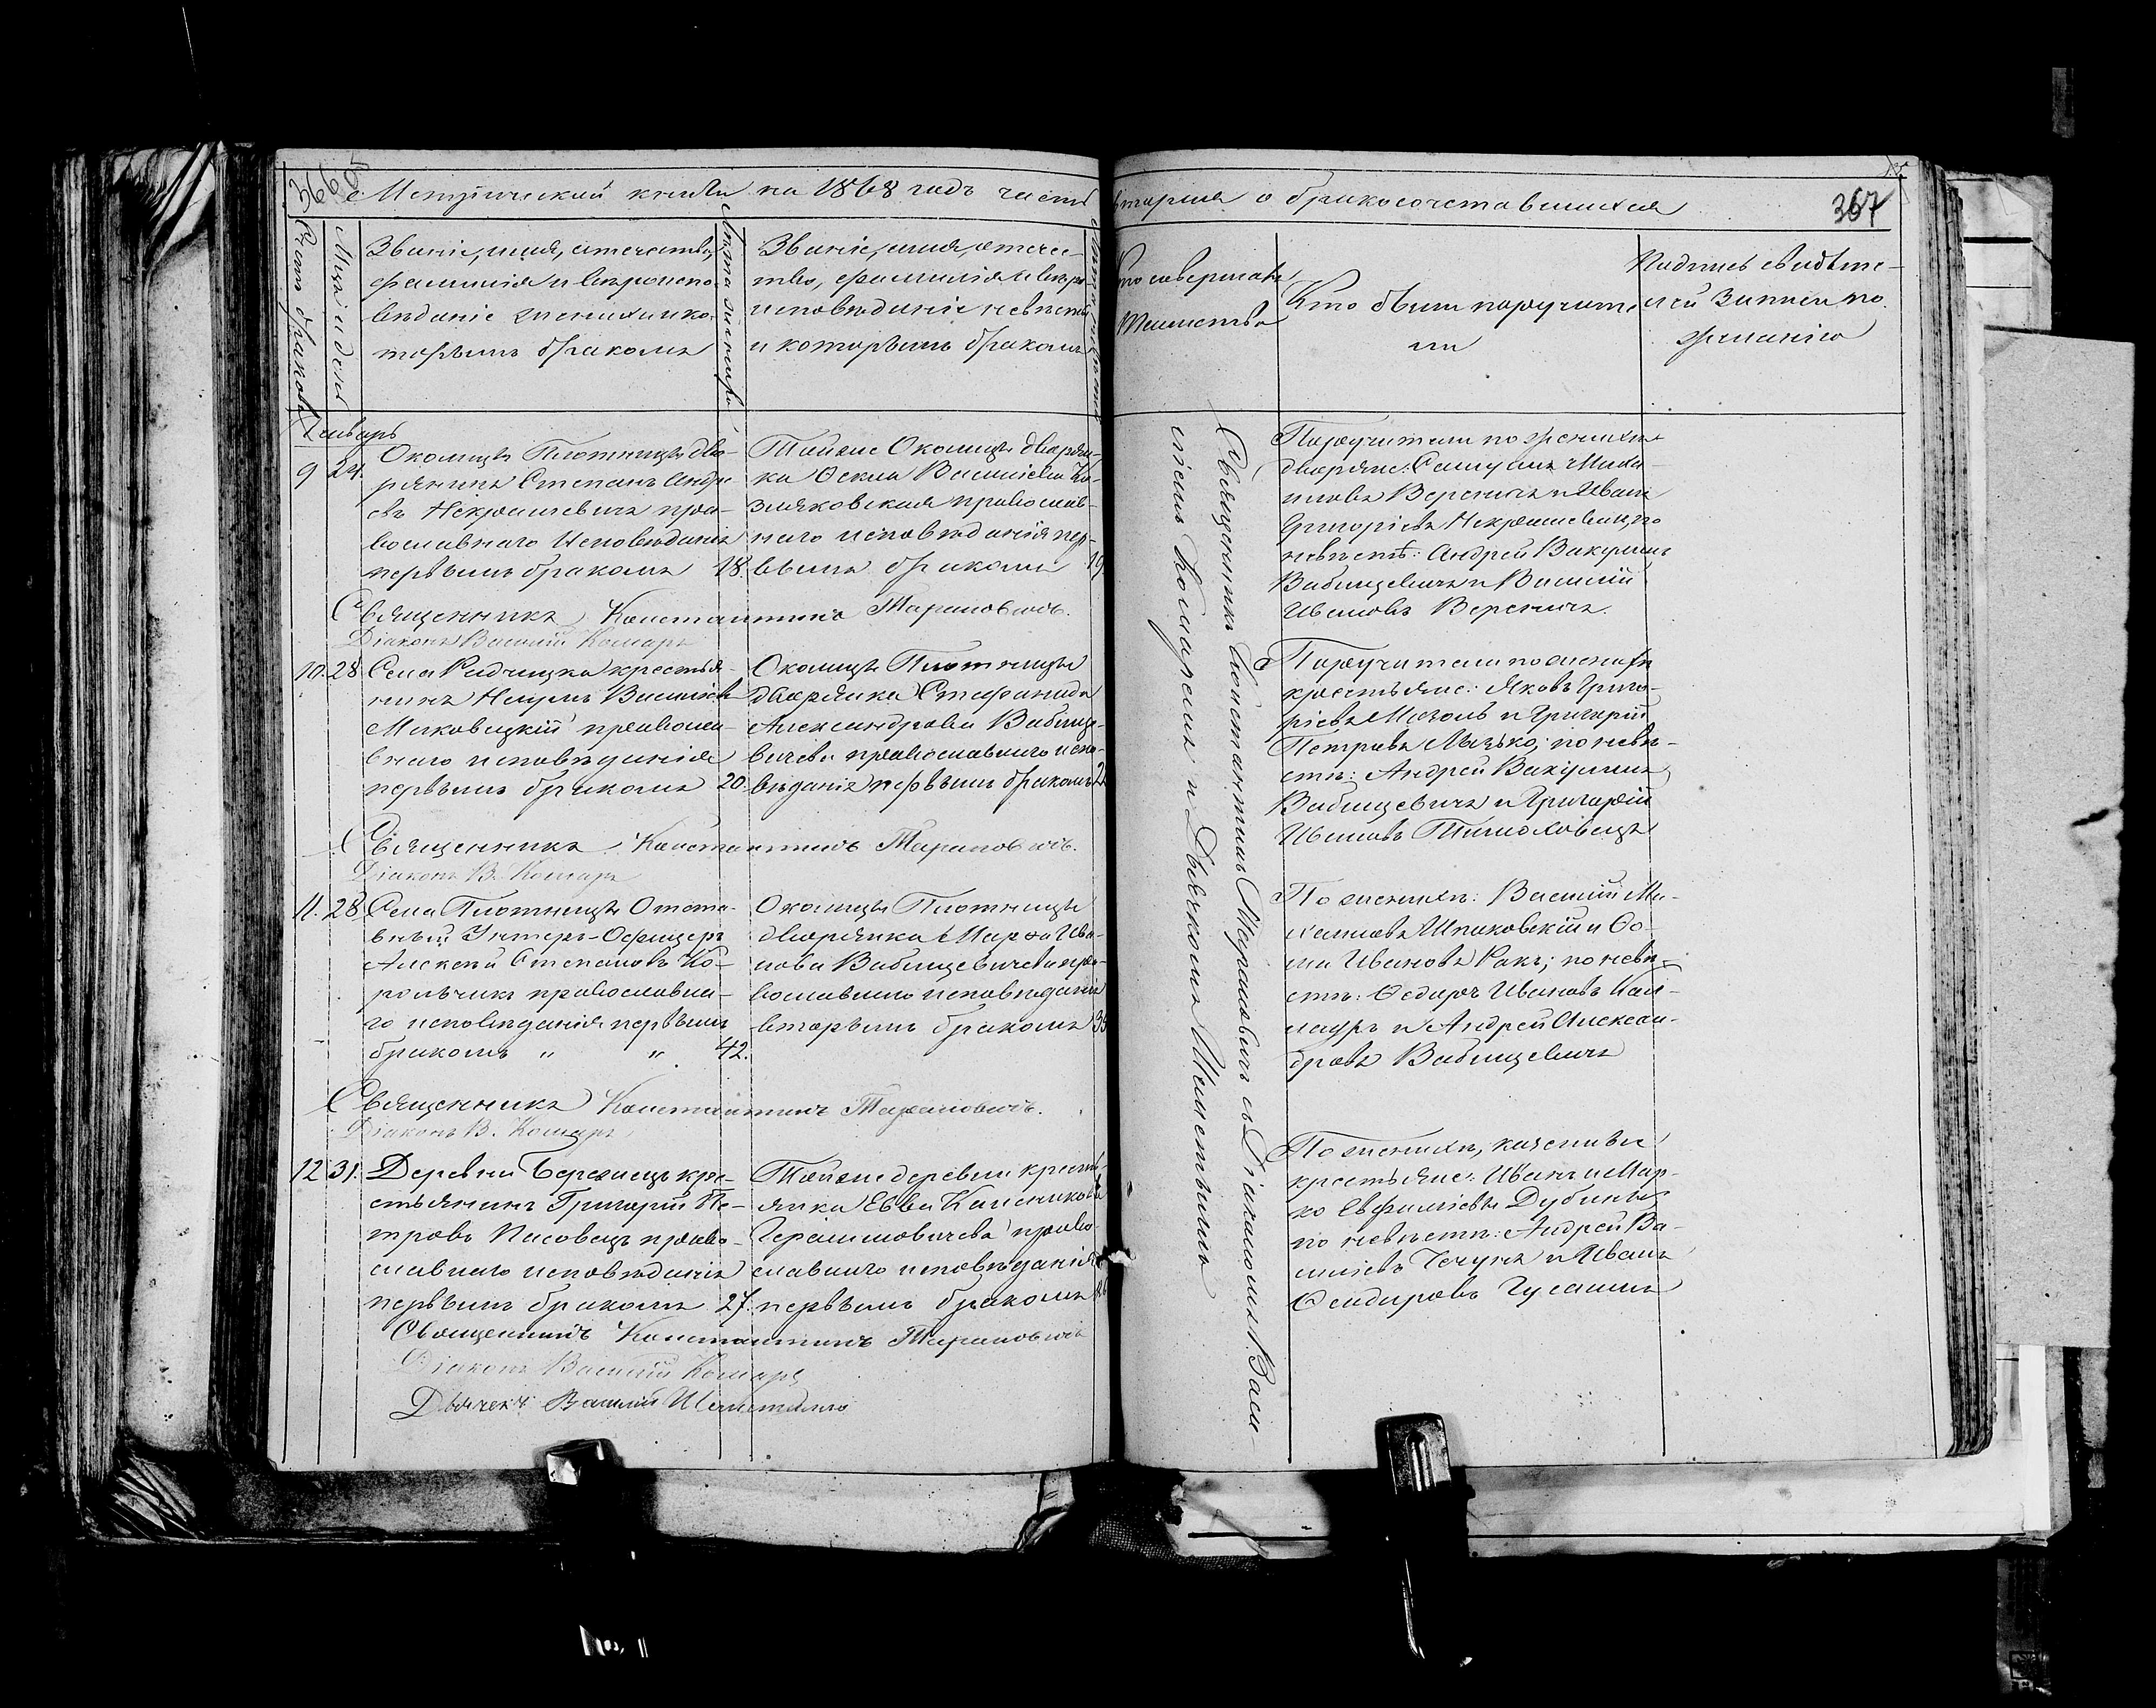 366
Метрической книги на 1868 годъ часть
вторая о бракосочетавшихся
367
Счетъ браковъ
Мѣсяцъ и день
Званіе, имя, отчество,
фамилія и вѣроиспо-
вѣданіе жениха и ко-
торымъ бракомъ
Лѣта жениха
Званіе, имя, отече-
тво, фамилія и вѣро
исповѣданіе невѣсты
и которымъ бракомъ
Лѣта невѣсты
Кто совершалъ
Таинство
Кто былъ поручите
ли
Подпись свидѣте-
лей записи по
желанію
Январь
9 24. Околицы Плотницы дво-
рянинъ Степанъ Андре
евъ Некрашевичъ пра-
вославнаго исповѣданія
первымъ бракомъ 18.
Тойже Околицы дворян-
ка Фекла Василіева Ко-
зляковская православ-
наго исповѣданія пер-
вымъ бракомъ 19
Поручители по женихѣ
дворяне: Самуилъ Миха-
иловъ Вереничъ и Иванъ
Григоріевъ Некрашевичъ, по
невѣстѣ: Андрей Вакулинъ
Вабищевичъ и Василій
Ивановъ Вереничъ.
Священникъ Константинъ Тарановичъ.
Діаконъ Василій Комаръ
10. 28 Села Радчицка крестья-
нинъ Наумъ Василіевъ
Маковецкій правосла-
внаго исповѣданія
первымъ бракомъ 20.
Околицы Плотницы
дворянка Стефанида
Александрова Вабище-
вичева православнаго испо-
вѣданія первымъ бракомъ 22
Поручители по женихѣ
крестьяне: Яковъ Григо-
ріевъ Мазоль и Григорій
Петровъ Лычко; по невѣ-
стѣ: Андрей Вакулинъ
Вабищевичъ и Григорій
Ивановъ Тимоховецъ
Священникъ Константинъ Тарановичъ.
Діаконъ В. Комаръ
11. 28 Села Плотницы Отста-
вный Унтеръ-Офицеръ
Алексѣй Степановъ Ко-
рольчикъ православна-
го исповѣданія первымъ
бракомъ " " 42.
Околицы Плотницы
дворянка Марфа Ива-
нова Вабищевичева пра-
вославнаго исповѣданія
вторымъ бракомъ 35
По женихѣ: Василій Ми-
хаиловъ Шпаковскій и Фо-
ма Ивановъ Ракъ; по невѣ-
стѣ: Федоръ Ивановъ
и Андрей Алексан-
дровъ Вабищевичъ
Священникъ Константинъ Тарановичъ.
Діаконъ В. Комаръ
12 31. Деревни Бережецъ кре-
стьянинъ Григорій Пе-
тровъ Пасовецъ право-
славнаго исповѣданія
первымъ бракомъ 27.
Тойже деревни кресть-
янка Евва Каленикова
Герасимовичева право-
славнаго исповѣданія
первымъ бракомъ 26
По женихѣ, казенные
крестьяне: Иванъ и Мар-
ко Евфиміевы Дубины
по невѣстѣ: Андрей Ва-
силіевъ Чечукъ и Иванъ
Феодоровъ Гусаимъ
Священникъ Константинъ Тарановичъ
Діаконъ Василій Комаръ
Дьячекъ Василій
Священникъ Константинъ Тарановичъ съ Діакономъ Васи-
ліемъ Комаремъ и Дьячкомъ